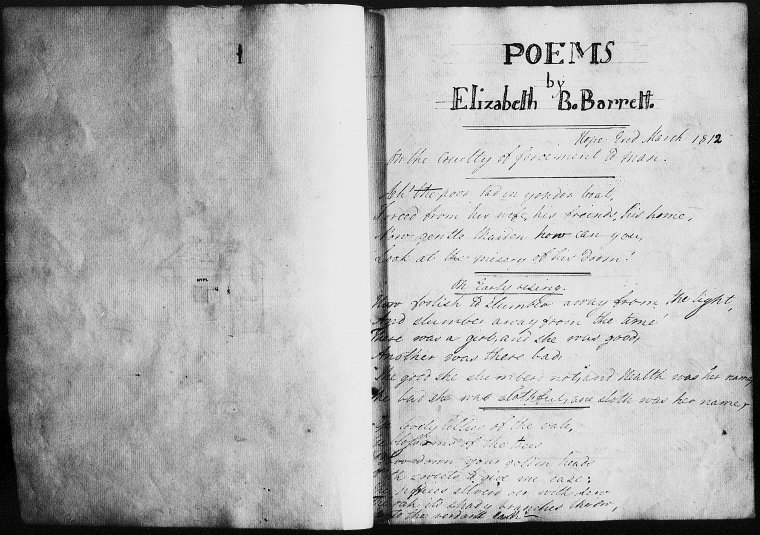 NYPL
POEMS
by
Elizabeth B. Barrett.
Hope 2nd March 1812
On the Cruelty of forcement to man.
Ah! the poor lad in yonder boat,
Forced from his wife, his friends, his home,
Now gentle Maiden how can you,
Look at the misery of his doom!
On Early rising.
How foolish to slumber away from the light,
And slumber away from the time!
There was a girl, and she was good,
Another was there bad,
The good she slumbered not, and Health was her name,
The bad she was slothful, and sloth was her name,
lillies of the vale,
of the trees
down your golden heads
sweets to give me ease;
silver'd oer with dew
its shady branches
the verdant